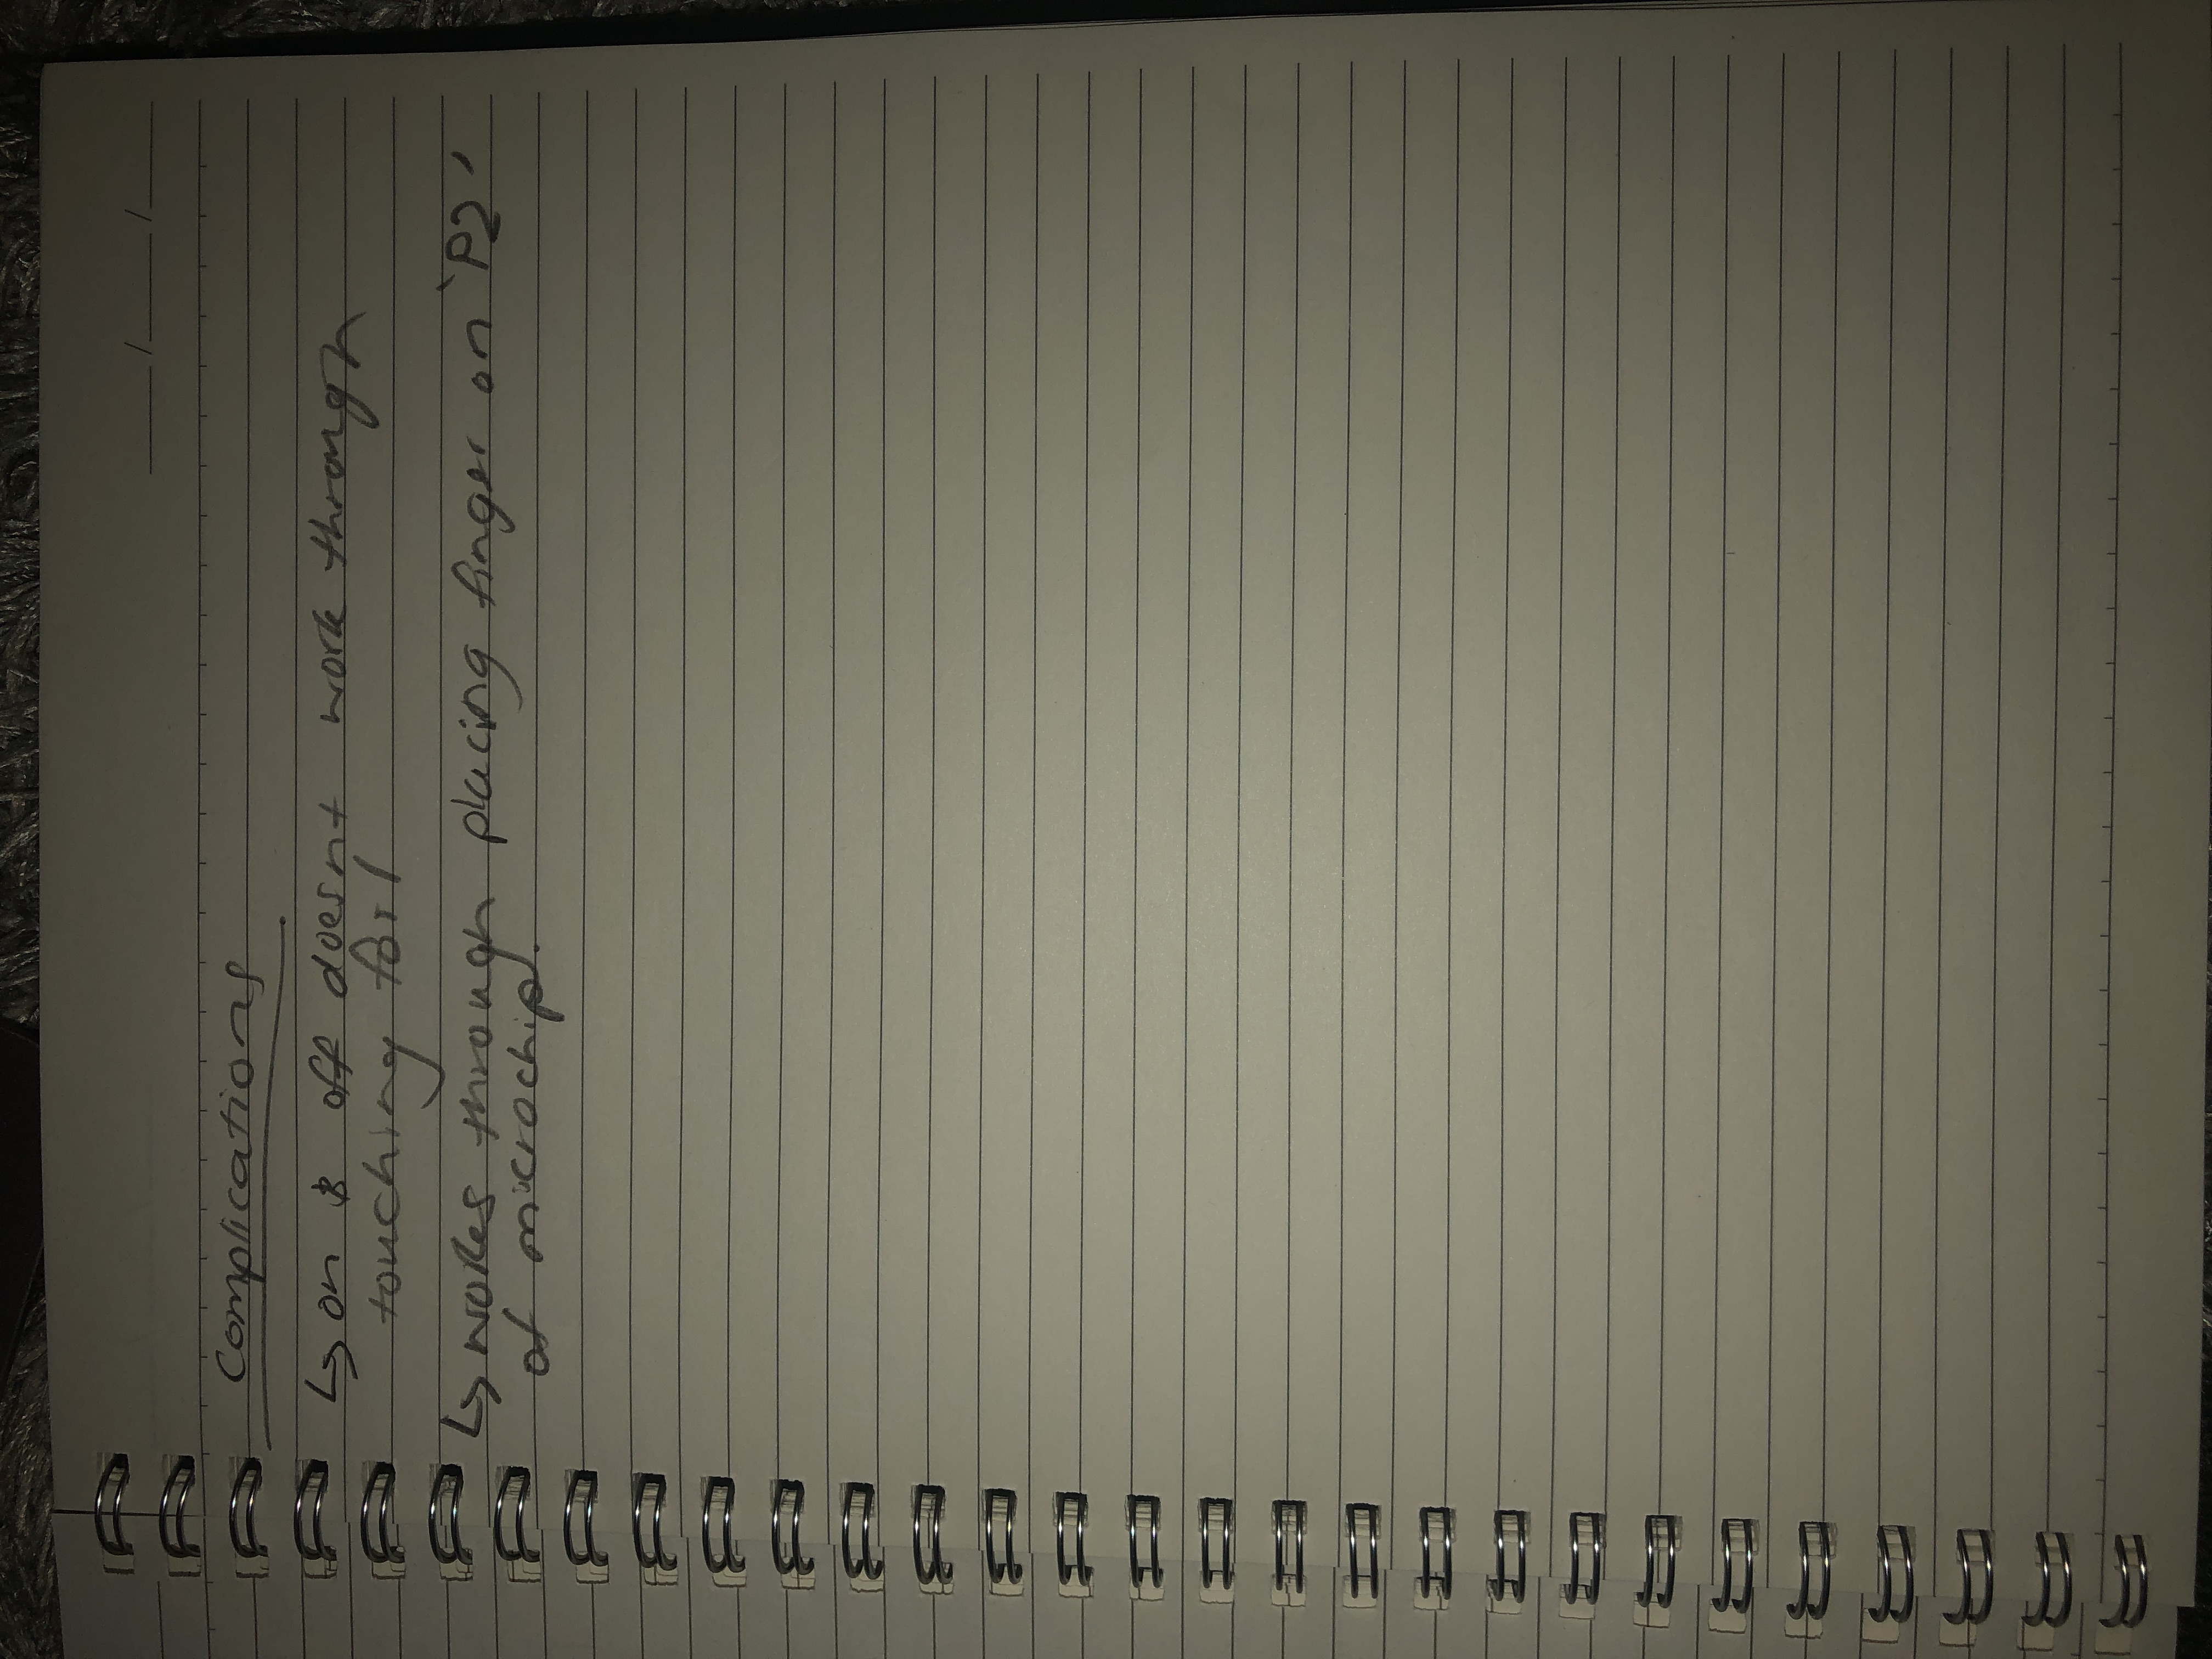 Complications
↳ on & off doesnt work through
touching foil
↳ works through placing finger on 'P2'
of microchip.